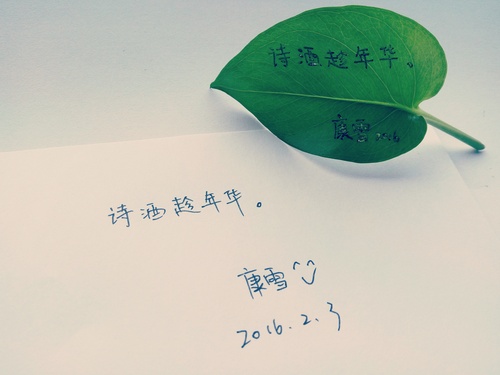 诗酒趁年华。
康雪2016
诗酒趁年华。
康雪^‿^
2016.2.3